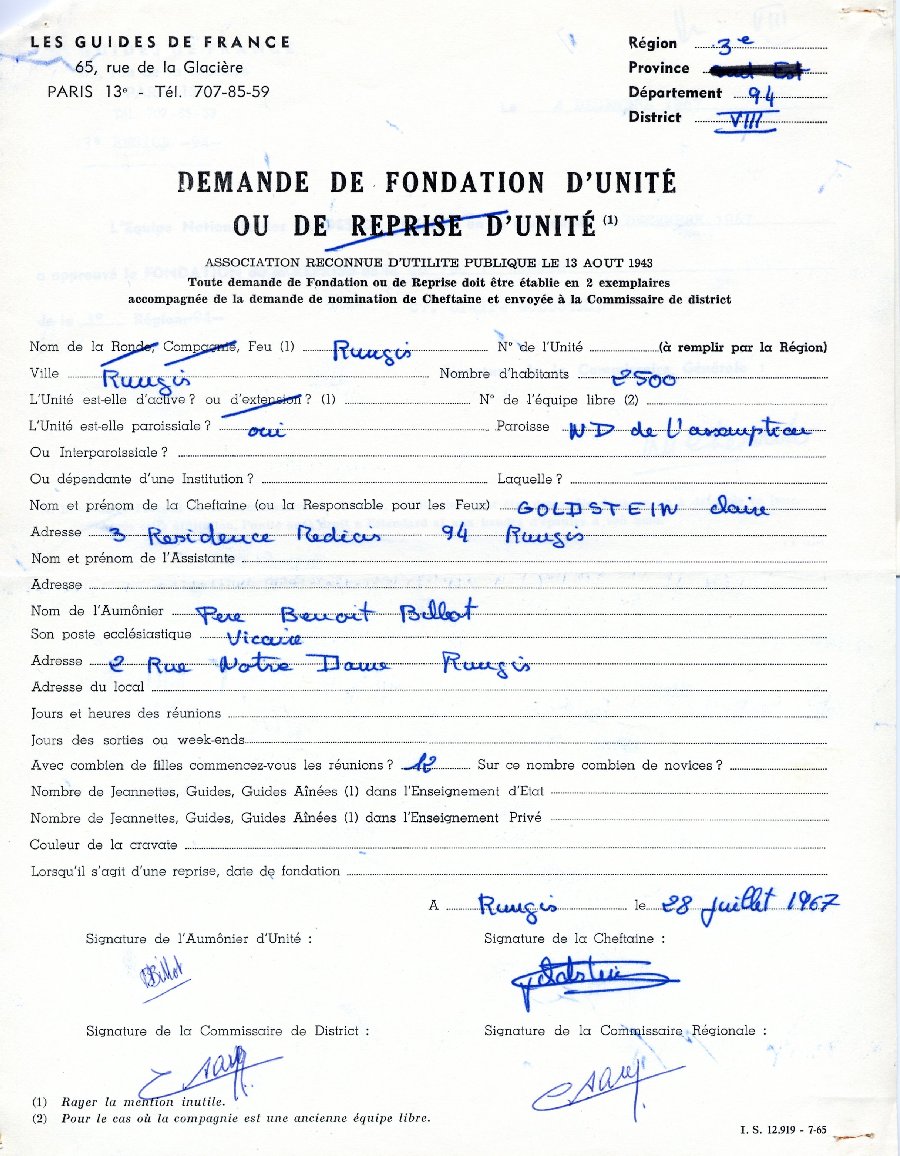 LES GUIDES DE FRANCE
65, rue de la Glacière
PARIS 13e - Tél. 707-85-59
Région 3e
Province
Département 94
District VIII
DEMANDE DE FONDATION D'UNITÉ
OU DE REPRISE D'UNITÉ (1)
ASSOCIATION RECONNUE D'UTILITE PUBLIQUE LE 13 AOUT 1943
Toute demande de Fondation ou de Reprise doit être établie en 2 exemplaires
accompagnée de la demande de nomination de Cheftaine et envoyée à la Commissaire de district
Nom de la Ronde, Compagnie, Feu (1) Rungis N° de l'Unité (à remplir par la Région)
Ville Rungis Nombre d'habitants 2500
L'Unité est-elle d'active ? ou d'extension ? (1) N° de l'équipe libre (2)
L'Unité est-elle paroissiale ? oui Paroisse ND de l'assomption
Ou Interparoissiale ?
Ou dépendante d'une Institution ? Laquelle ?
Nom et prénom de la Cheftaine (ou la Responsable pour les Feux) GOLDSTEIN claire
Adresse 3 Residence Medicis 94 Rungis
Nom et prénom de l'Assistante
Adresse
Nom de l'Aumônier Pere Benoit Billot
Son poste ecclésiastique Vicaire
Adresse 2 Rue Notre Dame Rungis
Adresse du local
Jours et heures des réunions
Jours des sorties ou week-ends
Avec combien de filles commencez-vous les réunions ? 12 Sur ce nombre combien de novices ?
Nombre de Jeannettes, Guides, Guides Aînées (1) dans l'Enseignement d'Etat
Nombre de Jeannettes, Guides, Guides Aînées (1) dans l'Enseignement Privé
Couleur de la cravate
Lorsqu'il s'agit d'une reprise, date de fondation
A Rungis le 28 juillet 1967
Signature de l'Aumônier d'Unité : Signature de la Cheftaine :
BBillot Goldstein
Signature de la Commissaire de District : Signature de la Commissaire Régionale :
(1) Rayer la mention inutile.
(2) Pour le cas où la compagnie est une ancienne équipe libre.
I. S. 12.919 - 7-65